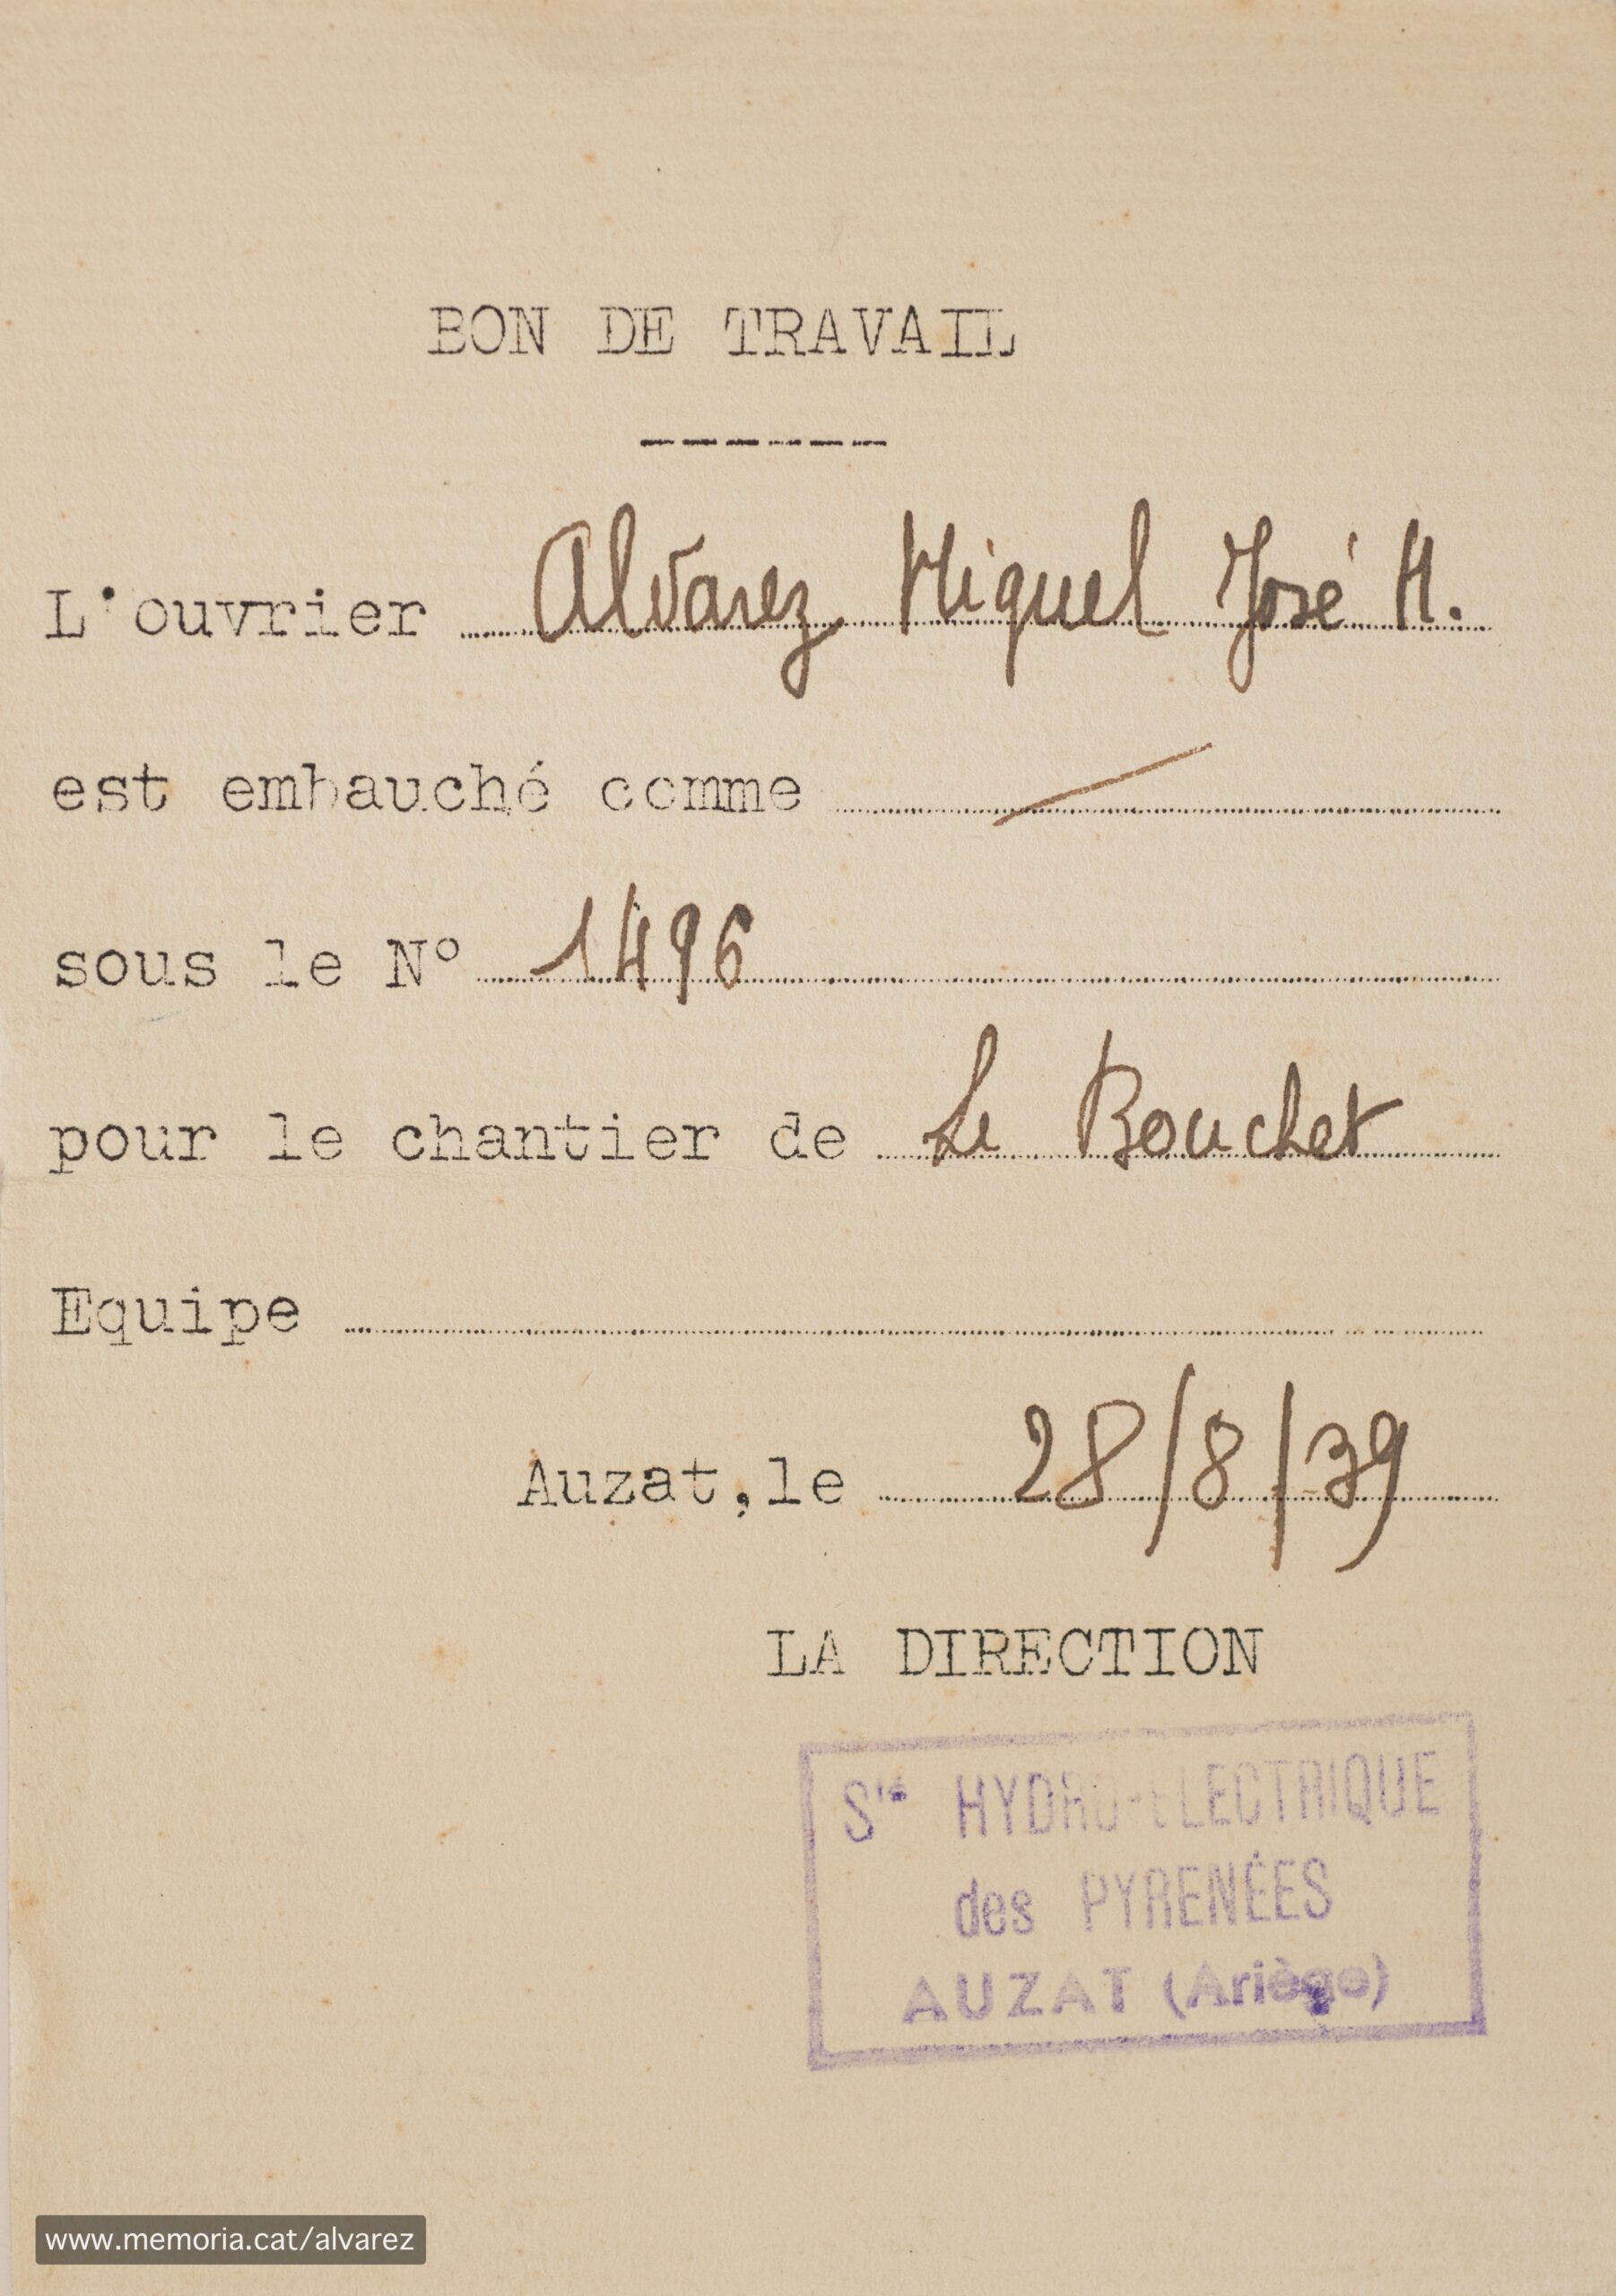 BON DE TRAVAIL
L'ouvrier Alvarez Miquel José M.
est embauché comme
sous le N° 1496
pour le chantier de Le Bouchet
Equipe
Auzat, le 28/8/39
LA DIRECTION
Sté HYDRO-ELECTRIQUE
des PYRENÉES
AUZAT (Ariège)
www.memoria.cat/alvarez